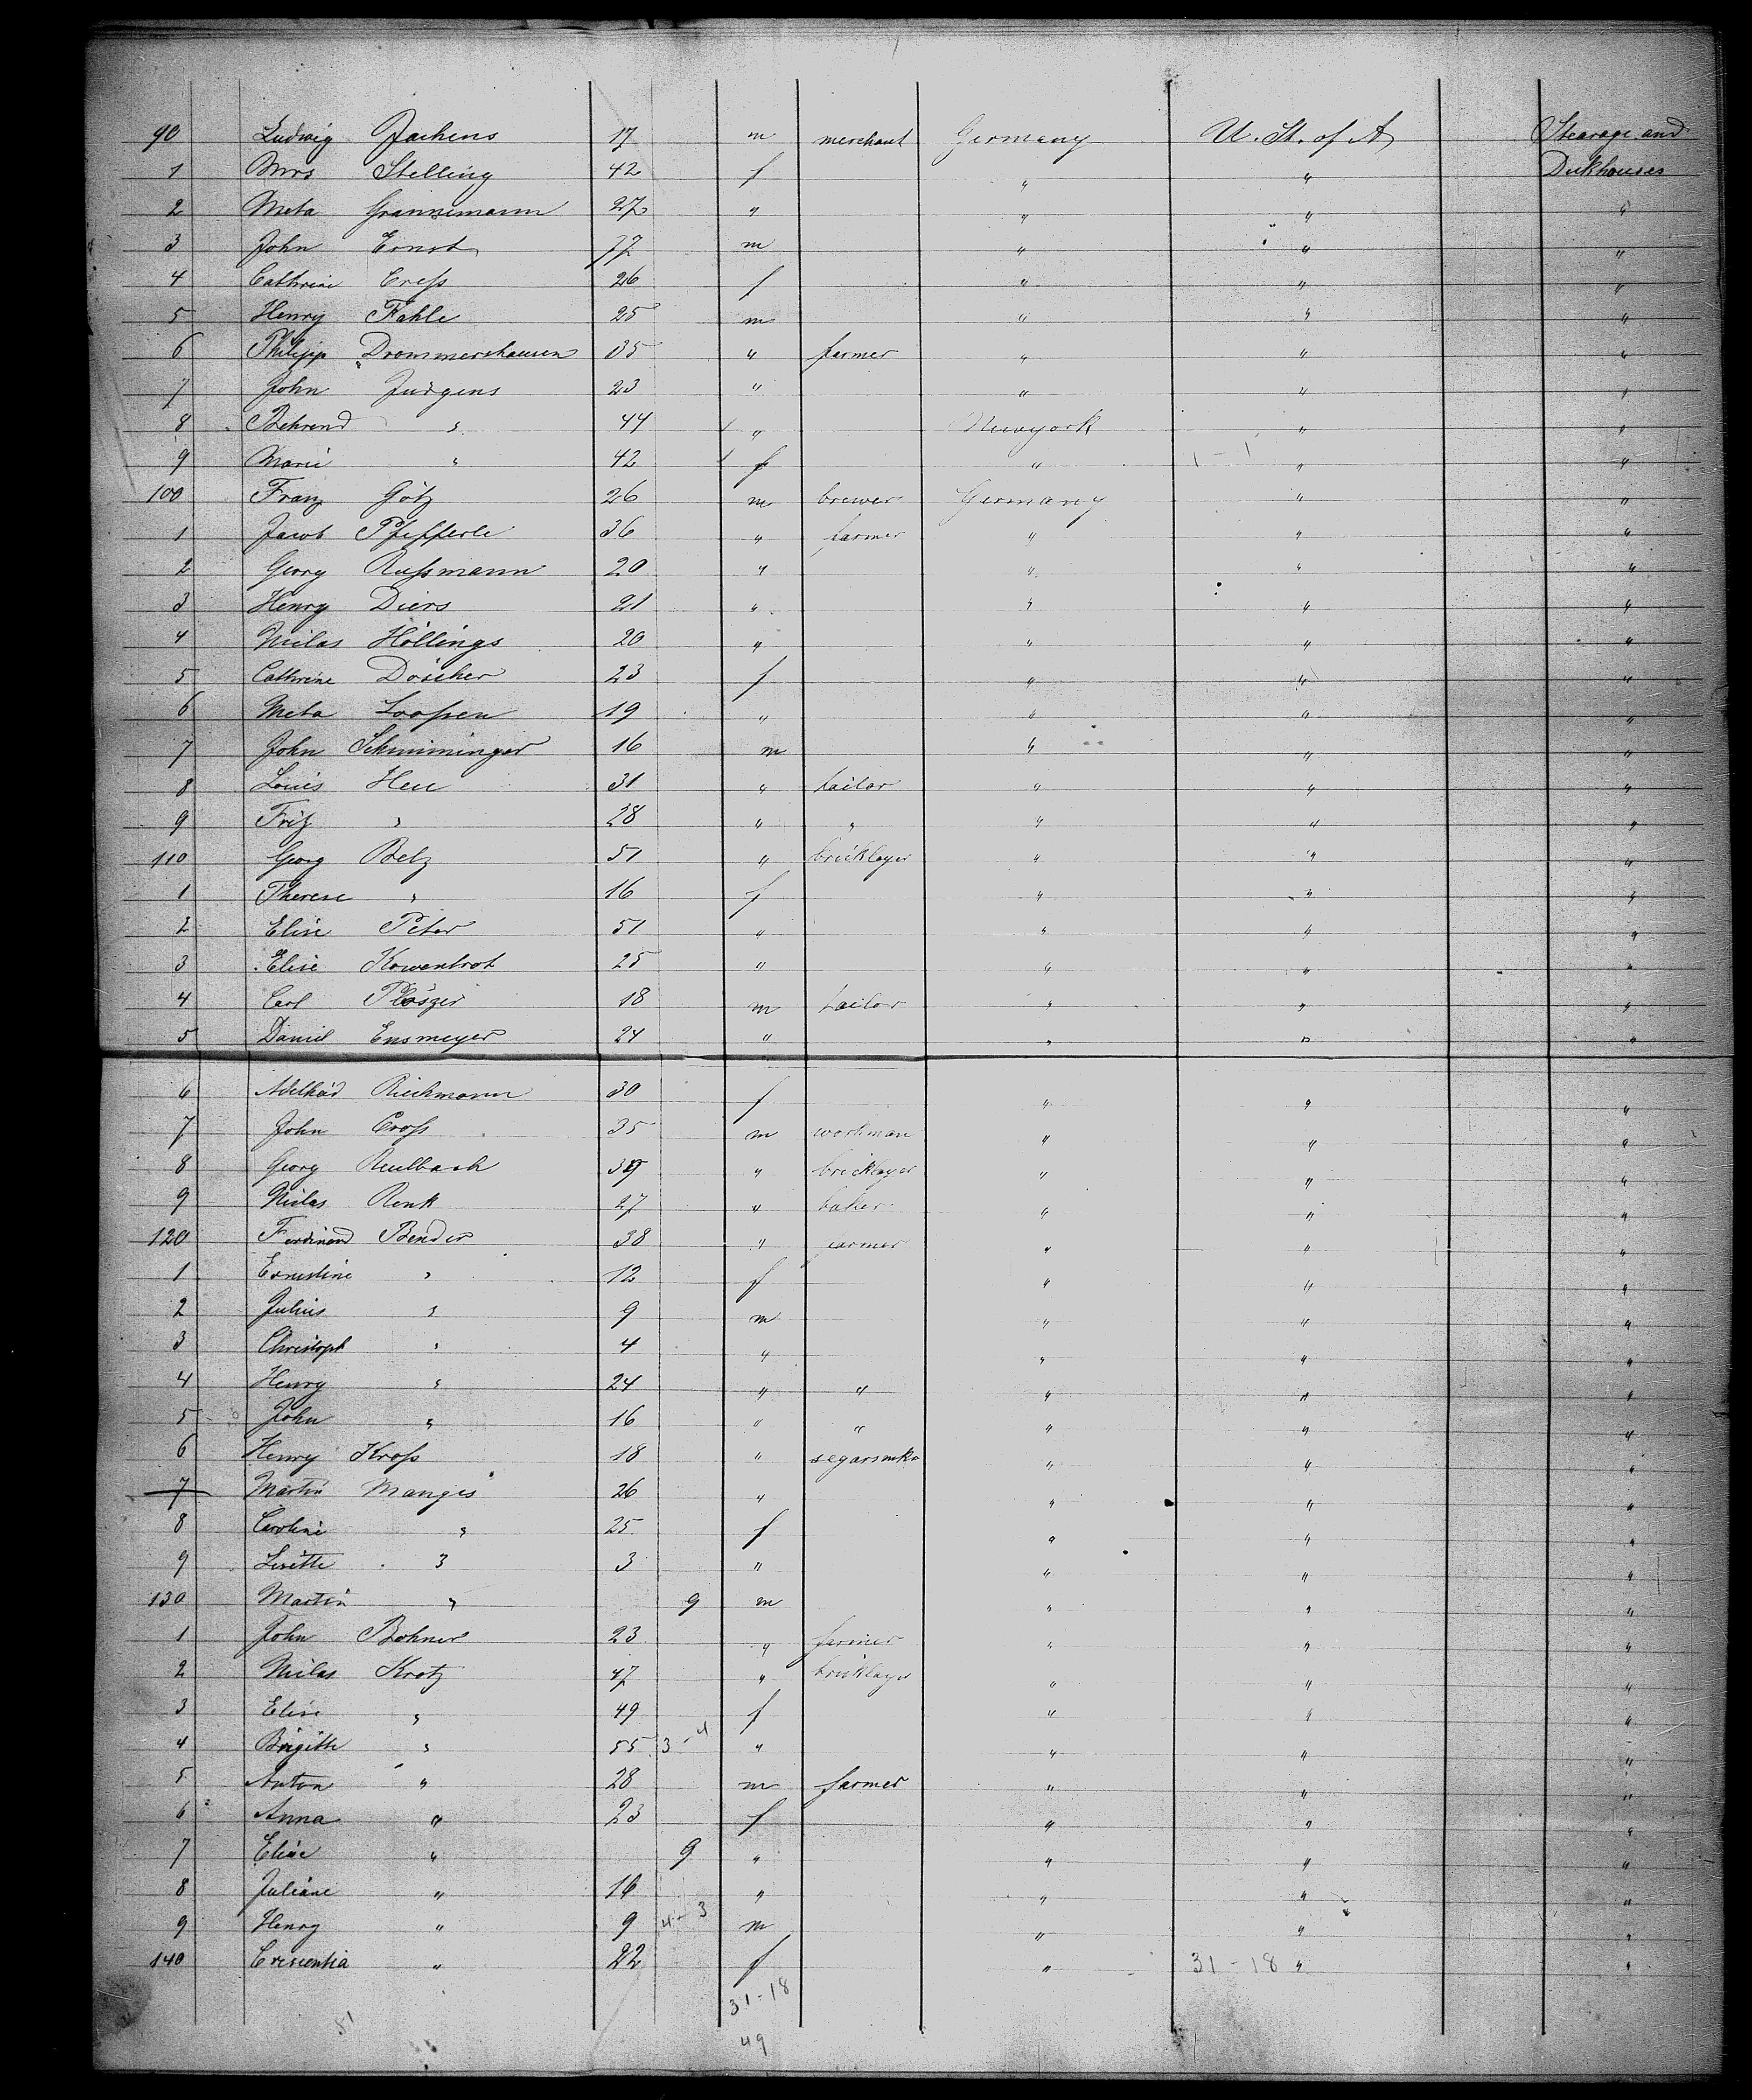 90 Ludwig Jachens 17 m merchant Germany U. St. of A Stearage and
1 Mrs Stelling 42 f " " Deckhouses
2 Meta Grannemann 27 " " " "
3 John Ernst 77 m " " "
4 Cathrine Creſs 26 f " " "
5 Henry Fahle 25 m " " "
6 Philipp Drommershausen 35 " farmer " " "
7 John Jürgens 23 " " " "
8 Behrend " 44 " Newyork " "
9 Marie " 42 f " 1 - 1 " "
100 Franz Götz 26 m brewer Germany " "
1 Jacob Pfefferle 36 " farmer " " "
2 Georg Ruſsmann 20 " " " "
3 Henry Diers 21 " " " "
4 Niclas Höllings 20 " " " "
5 Cathrine Döscher 23 f " " "
6 Meta Looſsen 19 " " " "
7 John Schwinninger 16 m " " "
8 Louis Heu 31 " tailor " " "
9 Fritz " 28 " " " " "
110 Georg Belz 51 " bricklayer " " "
1 Therese " 16 f " " "
2 Elise Peter 51 " " " "
3 Elise Kowentrot 25 " " " "
4 Carl 18 m tailor " " "
5 Daniel Ensmeyer 24 " " " "
6 Adelheid Rieckmann 30 f " " "
7 John Croſs 35 m workman " " "
8 Georg Reulbach 39 " bricklayer " " "
9 Niclas Renk 27 " baker " " "
120 Ferdinand Bender 38 " farmer " " "
1 Ernestine " 12 f " " "
2 Julius " 9 m " " "
3 Christoph " 4 " " " "
4 Henry " 24 " " " " "
5 John " 16 " " " " "
6 Henry Kroſs 18 " segarsmkr " " "
7 Martin Manges 26 " " " "
8 Caroline " 25 f " " "
9 Lisette " 3 " " " "
130 Martin " 9 m " " "
1 John Bohner 23 " farmer " " "
2 Niclas Kratz 47 " bricklayer " " "
3 Elise " 49 f " " "
4 Brigitte " 55 3 - 4 " " " "
5 Anton " 28 m farmer " " "
6 Anna " 23 f " " "
7 Elise " 9 " " " "
8 Juliane " 16 " " " "
9 Henry " 9 4 - 3 m " " "
140 Crescentia " 22 f " 31 - 18 " "
31 - 18
51
49